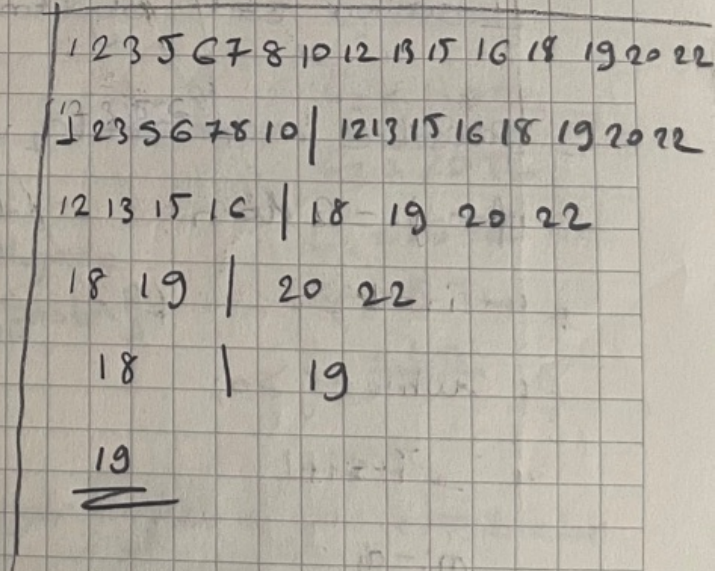 1 2 3 5 6 7 8 10 12 13 15 16 18 19 20 22
1 2 3 5 6 7 8 10 | 12 13 15 16 18 19 20 22
12 13 15 16 | 18 19 20 22
18 19 | 20 22
18 | 19
19